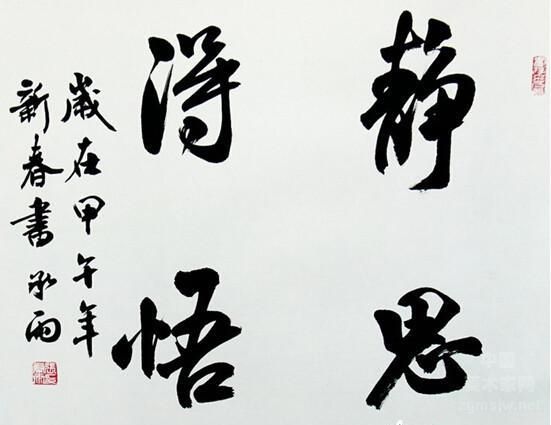 静思
得悟
歲在甲午年
新春書承雨
中国
美术家网
zgmsjw.net